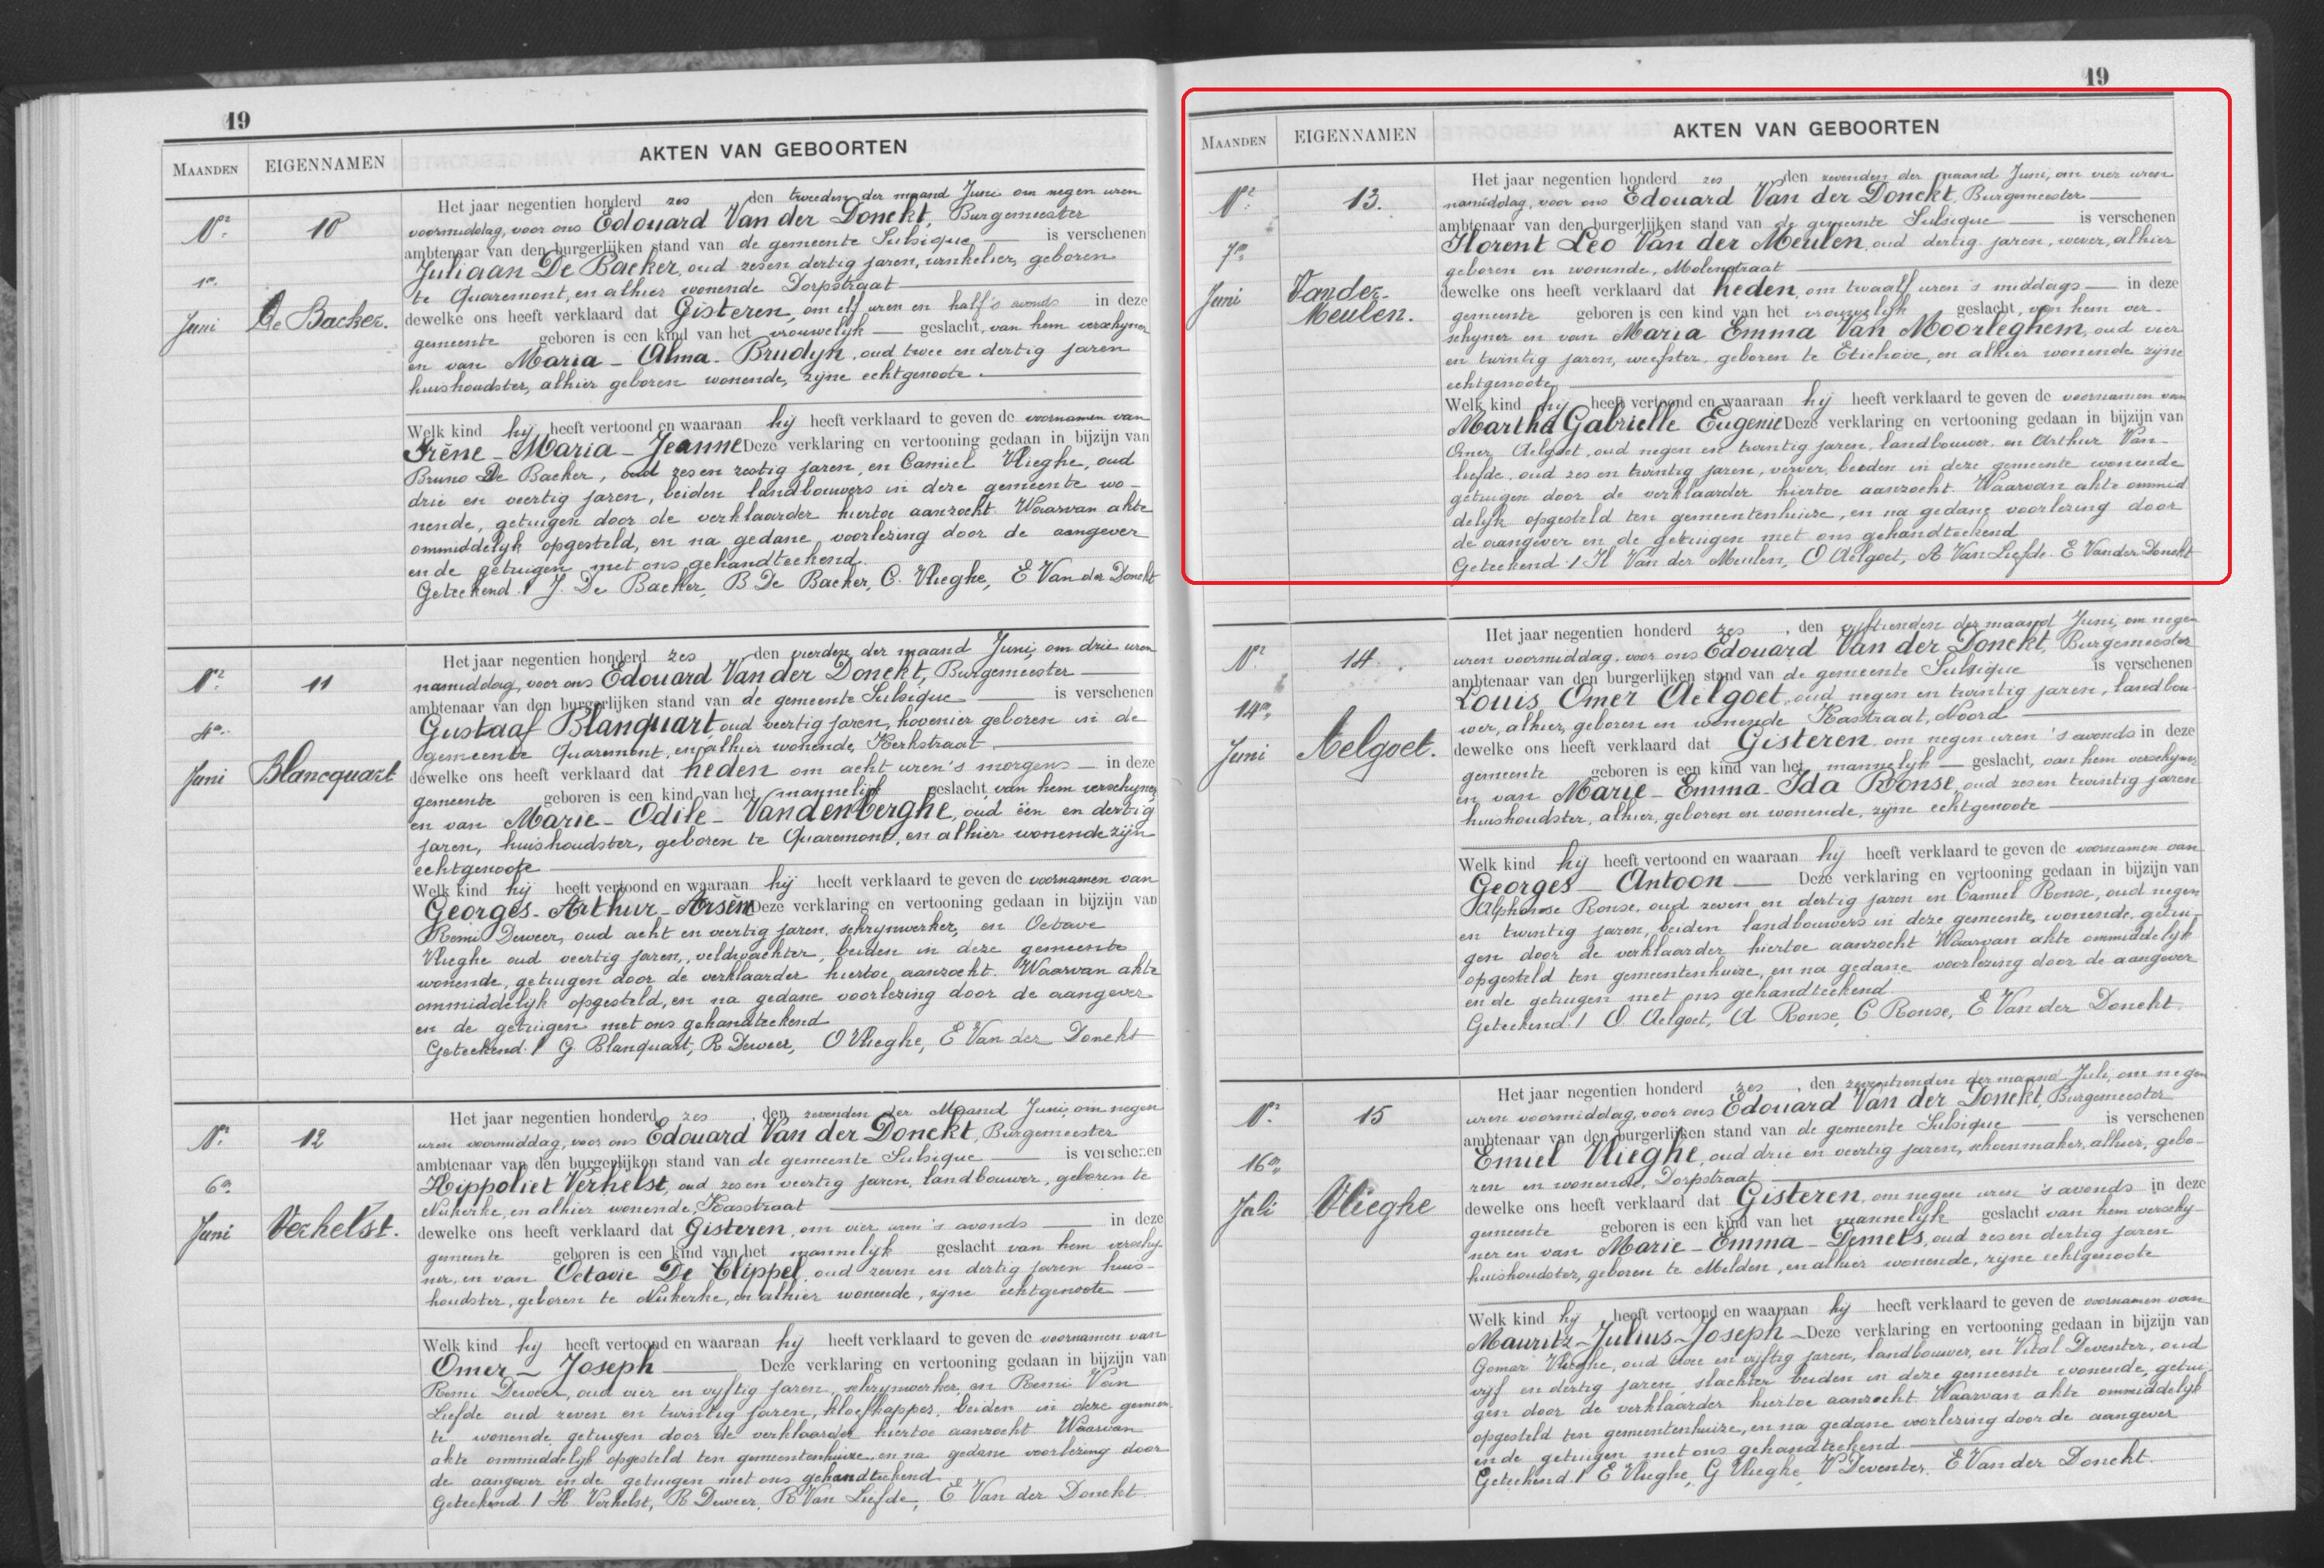 19
MAANDEN EIGENNAMEN AKTEN VAN GEBOORTEN
Nr 10
1en
Juni De Backer.
Het jaar negentien honderd zes den tweeden der maand Juni om negen uren
voormiddag, voor ons Edouard Van der Donckt, Burgemeester
ambtenaar van den burgerlijken stand van de gemeente Sulsique is verschenen
Juliaan De Backer, oud zesen dertig jaren, winkelier, geboren
te Quaremont, en alhier wonende Dorpstraat
dewelke ons heeft verklaard dat Gisteren, om elf uren en half 's avonds in deze
gemeente geboren is een kind van het vrouwelyk geslacht, van hem verschyner
en van Maria - Alma - Brudyn, oud twee en dertig jaren
huishoudster, alhier geboren wonende, zyne echtgenoote.
Welk kind hij heeft vertoond en waaraan hij heeft verklaard te geven de voornamen van
Irène - Maria - Jeanne Deze verklaring en vertooning gedaan in bijzijn van
Bruno De Backer, oud zesen zestig jaren, en Camiel Vlieghe, oud
drie en veertig jaren, beiden landbouwers in deze gemeente wo-
nende, getuigen door de verklaarder hiertoe aanzocht. Waarvan akte
ommiddelyk opgesteld, en na gedane voorlezing door de aangever
en de getuigen met ons gehandteekend.
Geteekend / J. De Backer, B De Backer, C. Vlieghe, E Van der Donckt
Nr 11
4en
Juni Blancquart
Het jaar negentien honderd zes den vierden der maand Juni, om drie uren
namiddag, voor ons Edouard Van der Donckt, Burgemeester
ambtenaar van den burgerlijken stand van de gemeente Sulsique is verschenen
Gustaaf Blanquart, oud veertig jaren, hovenier geboren in de
gemeente Quaremont, en alhier wonende, Kerkstraat
dewelke ons heeft verklaard dat heden om acht uren 's morgens in deze
gemeente geboren is een kind van het mannelijk geslacht, van hem verschyner
en van Marie - Odile - Vandenberghe, oud één en dertig
jaren, huishoudster, geboren te Quaremont, en alhier wonende zijn
echtgenoote
Welk kind hij heeft vertoond en waaraan hij heeft verklaard te geven de voornamen van
Georges - Arthur - Arsène Deze verklaring en vertooning gedaan in bijzijn van
Remi Deweer, oud acht en veertig jaren, schrynwerker, en Octave
Vlieghe oud veertig jaren, veldwachter, beiden in deze gemeente
wonende, getuigen door de verklaarder hiertoe aanzocht. Waarvan akte
ommiddelyk opgesteld, en na gedane voorlezing door de aangever
en de getuigen met ons gehandteekend
Geteekend / G Blanquart, R Deweer, O Vlieghe, E Van der Donckt
Nr 12
6en
Juni Verhelst.
Het jaar negentien honderd zes, den zevenden der Maand Juni, om negen
uren voormiddag, voor ons Edouard Van der Donckt, Burgemeester
ambtenaar van den burgerlijken stand van de gemeente Sulsique is verschenen
Hippoliet Verhelst, oud zesen veertig jaren, landbouwer, geboren te
Nukerke, en alhier wonende, Kasstraat
dewelke ons heeft verklaard dat Gisteren, om vier uren 's avonds in deze
gemeente geboren is een kind van het mannelyk geslacht van hem verschy-
ner, en van Octavie De Clippel, oud zeven en dertig jaren huis-
houdster, geboren te Nukerke, en alhier wonende, zyne echtgenoote
Welk kind hij heeft vertoond en waaraan hij heeft verklaard te geven de voornamen van
Omer - Joseph Deze verklaring en vertooning gedaan in bijzijn van
Remi Deweer, oud vier en vyftig jaren, schrynwerker, en Remi Van
Liefde oud zeven en twintig jaren, kloefkapper, beiden in deze gemeen-
te wonende getuigen door de verklaarder hiertoe aanzocht Waarvan
akte ommiddelyk opgesteld ten gemeentenhuize, en na gedane voorlezing door
de aangever en de getuigen met ons gehandteekend
Geteekend / H Verhelst, R Deweer, R Van Liefde, E Van der Donckt
19
MAANDEN EIGENNAMEN AKTEN VAN GEBOORTEN
Nr 13.
7en
Juni Vander-
Meulen.
Het jaar negentien honderd zes den zevenden der maand Juni, om vier uren
namiddag, voor ons Edouard Van der Donckt, Burgemeester
ambtenaar van den burgerlijken stand van de gemeente Sulsique is verschenen
Florent Leo Van der Meulen, oud dertig jaren, wever, alhier
geboren en wonende, Molenstraat
dewelke ons heeft verklaard dat heden, om twaalf uren 's middags in deze
gemeente geboren is een kind van het vrouwelyk geslacht, van hem ver-
schyner en van Maria Emma Van Moorleghem, oud vier
en twintig jaren, weefster, geboren te Etichove, en alhier wonende zijne
echtgenoote
Welk kind hij heeft vertoond en waaraan hij heeft verklaard te geven de voornamen van
Martha Gabrielle Eugenie Deze verklaring en vertooning gedaan in bijzijn van
Omer Aelgoet, oud negen en twintig jaren, landbouwer en Arthur Van-
liefde, oud zes en twintig jaren, verver, beiden in deze gemeente wonende
getuigen door de verklaarder hiertoe aanzocht. Waarvan akte ommid
delyk opgesteld ten gemeentenhuize, en na gedane voorlezing door
de aangever en de getuigen met ons gehandteekend
Geteekend / Fl Van der Meulen, O Aelgoet, A Van Liefde. E Vander Donckt
Nr 14.
14en
Juni Aelgoet.
Het jaar negentien honderd zes, den vyftienden der maand Juni, om negen
uren voormiddag, voor ons Edouard Van der Donckt, Burgemeester
ambtenaar van den burgerlijken stand van de gemeente Sulsique is verschenen
Louis Omer Aelgoet, oud negen en twintig jaren, landbou-
wer, alhier, geboren en wonende Kasstraat, Noord
dewelke ons heeft verklaard dat Gisteren om negen uren 's avonds in deze
gemeente geboren is een kind van het mannelyk geslacht, van hem verschyner
en van Marie - Emma - Ida Ronse, oud zesen twintig jaren
huishoudster, alhier, geboren en wonende, zyne echtgenoote
Welk kind hij heeft vertoond en waaraan hij heeft verklaard te geven de voornamen van
Georges - Antoon Deze verklaring en vertooning gedaan in bijzijn van
Alphonse Ronse, oud zeven en dertig jaren en Camiel Ronse, oud negen
en twintig jaren, beiden landbouwers in deze gemeente wonende, getui-
gen door de verklaarder hiertoe aanzocht Waarvan akte ommiddelyk
opgesteld ten gemeentenhuize, en na gedane voorlezing door de aangever
en de getuigen met ons gehandteekend
Geteekend / O. Aelgoet, A Ronse, C Ronse, E Van der Donckt.
Nr 15
16en
Juli Vlieghe
Het jaar negentien honderd zes, den zeventienden der maand Juli, om negen
uren voormiddag, voor ons Edouard Van der Donckt, Burgemeester
ambtenaar van den burgerlijken stand van de gemeente Sulsique is verschenen
Emiel Vlieghe, oud drie en veertig jaren, schoenmaker, alhier, gebo-
ren en wonende, Dorpstraat
dewelke ons heeft verklaard dat Gisteren, om negen uren 's avonds in deze
gemeente geboren is een kind van het mannelyk geslacht van hem verschy-
ner en van Marie - Emma - Demets, oud zesen dertig jaren
huishoudster, geboren te Melden, en alhier wonende, zyne echtgenoote
Welk kind hij heeft vertoond en waaraan hij heeft verklaard te geven de voornamen van
Mauritz - Julius - Joseph - Deze verklaring en vertooning gedaan in bijzijn van
Gomar Vlieghe, oud twee en vyftig jaren, landbouwer, en Vital Deventer, oud
vyf en dertig jaren, slachter beiden in deze gemeente wonende, getui-
gen door de verklaarder hiertoe aanzocht Waarvan akte ommiddelyk
opgesteld ten gemeentenhuize, en na gedane voorlezing door de aangever
en de getuigen met ons gehandteekend
Geteekend / E Vlieghe, G Vlieghe, V Deventer, E Van der Donckt.